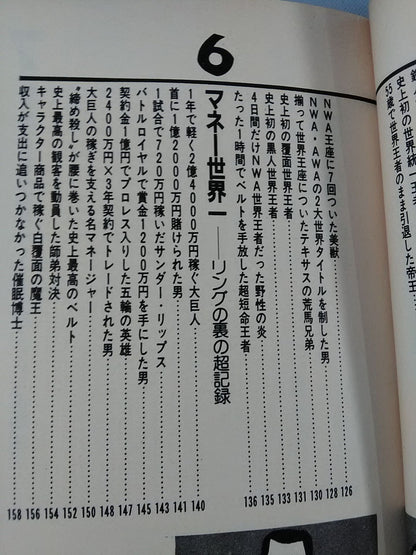 史上初の世界統一
55歳で世界王者のまま引退した帝王
NWA王座に7回ついた美獣……126
NWA・AWAの2大世界タイトルを制した男……128
揃って世界王座についたテキサスの荒馬兄弟……130
史上初の覆面世界王者……131
史上初の黒人世界王者……133
4日間だけNWA世界王者だった野性の炎……135
たった1時間でベルトを手放した超短命王者……136
6 マネー世界一──リングの裏の超記録
1年で軽く2億4000万円稼ぐ大巨人……140
首に1億2000万円賭けられた男……141
1試合で720万円稼いだサンダー・リップス……143
バトルロイヤルで賞金1200万円を手にした男……145
契約金1億円でプロレス入りした五輪の英雄……147
2400万円×3年契約でトレードされた男……148
大巨人の稼ぎを支える名マネージャー……150
〝締め殺し〟が腰に巻いた史上最高のベルト……152
史上最高の観客を動員した師弟対決……154
キャラクター商品で稼ぐ白覆面の魔王……156
収入が支出に追いつかなかった催眠博士……158